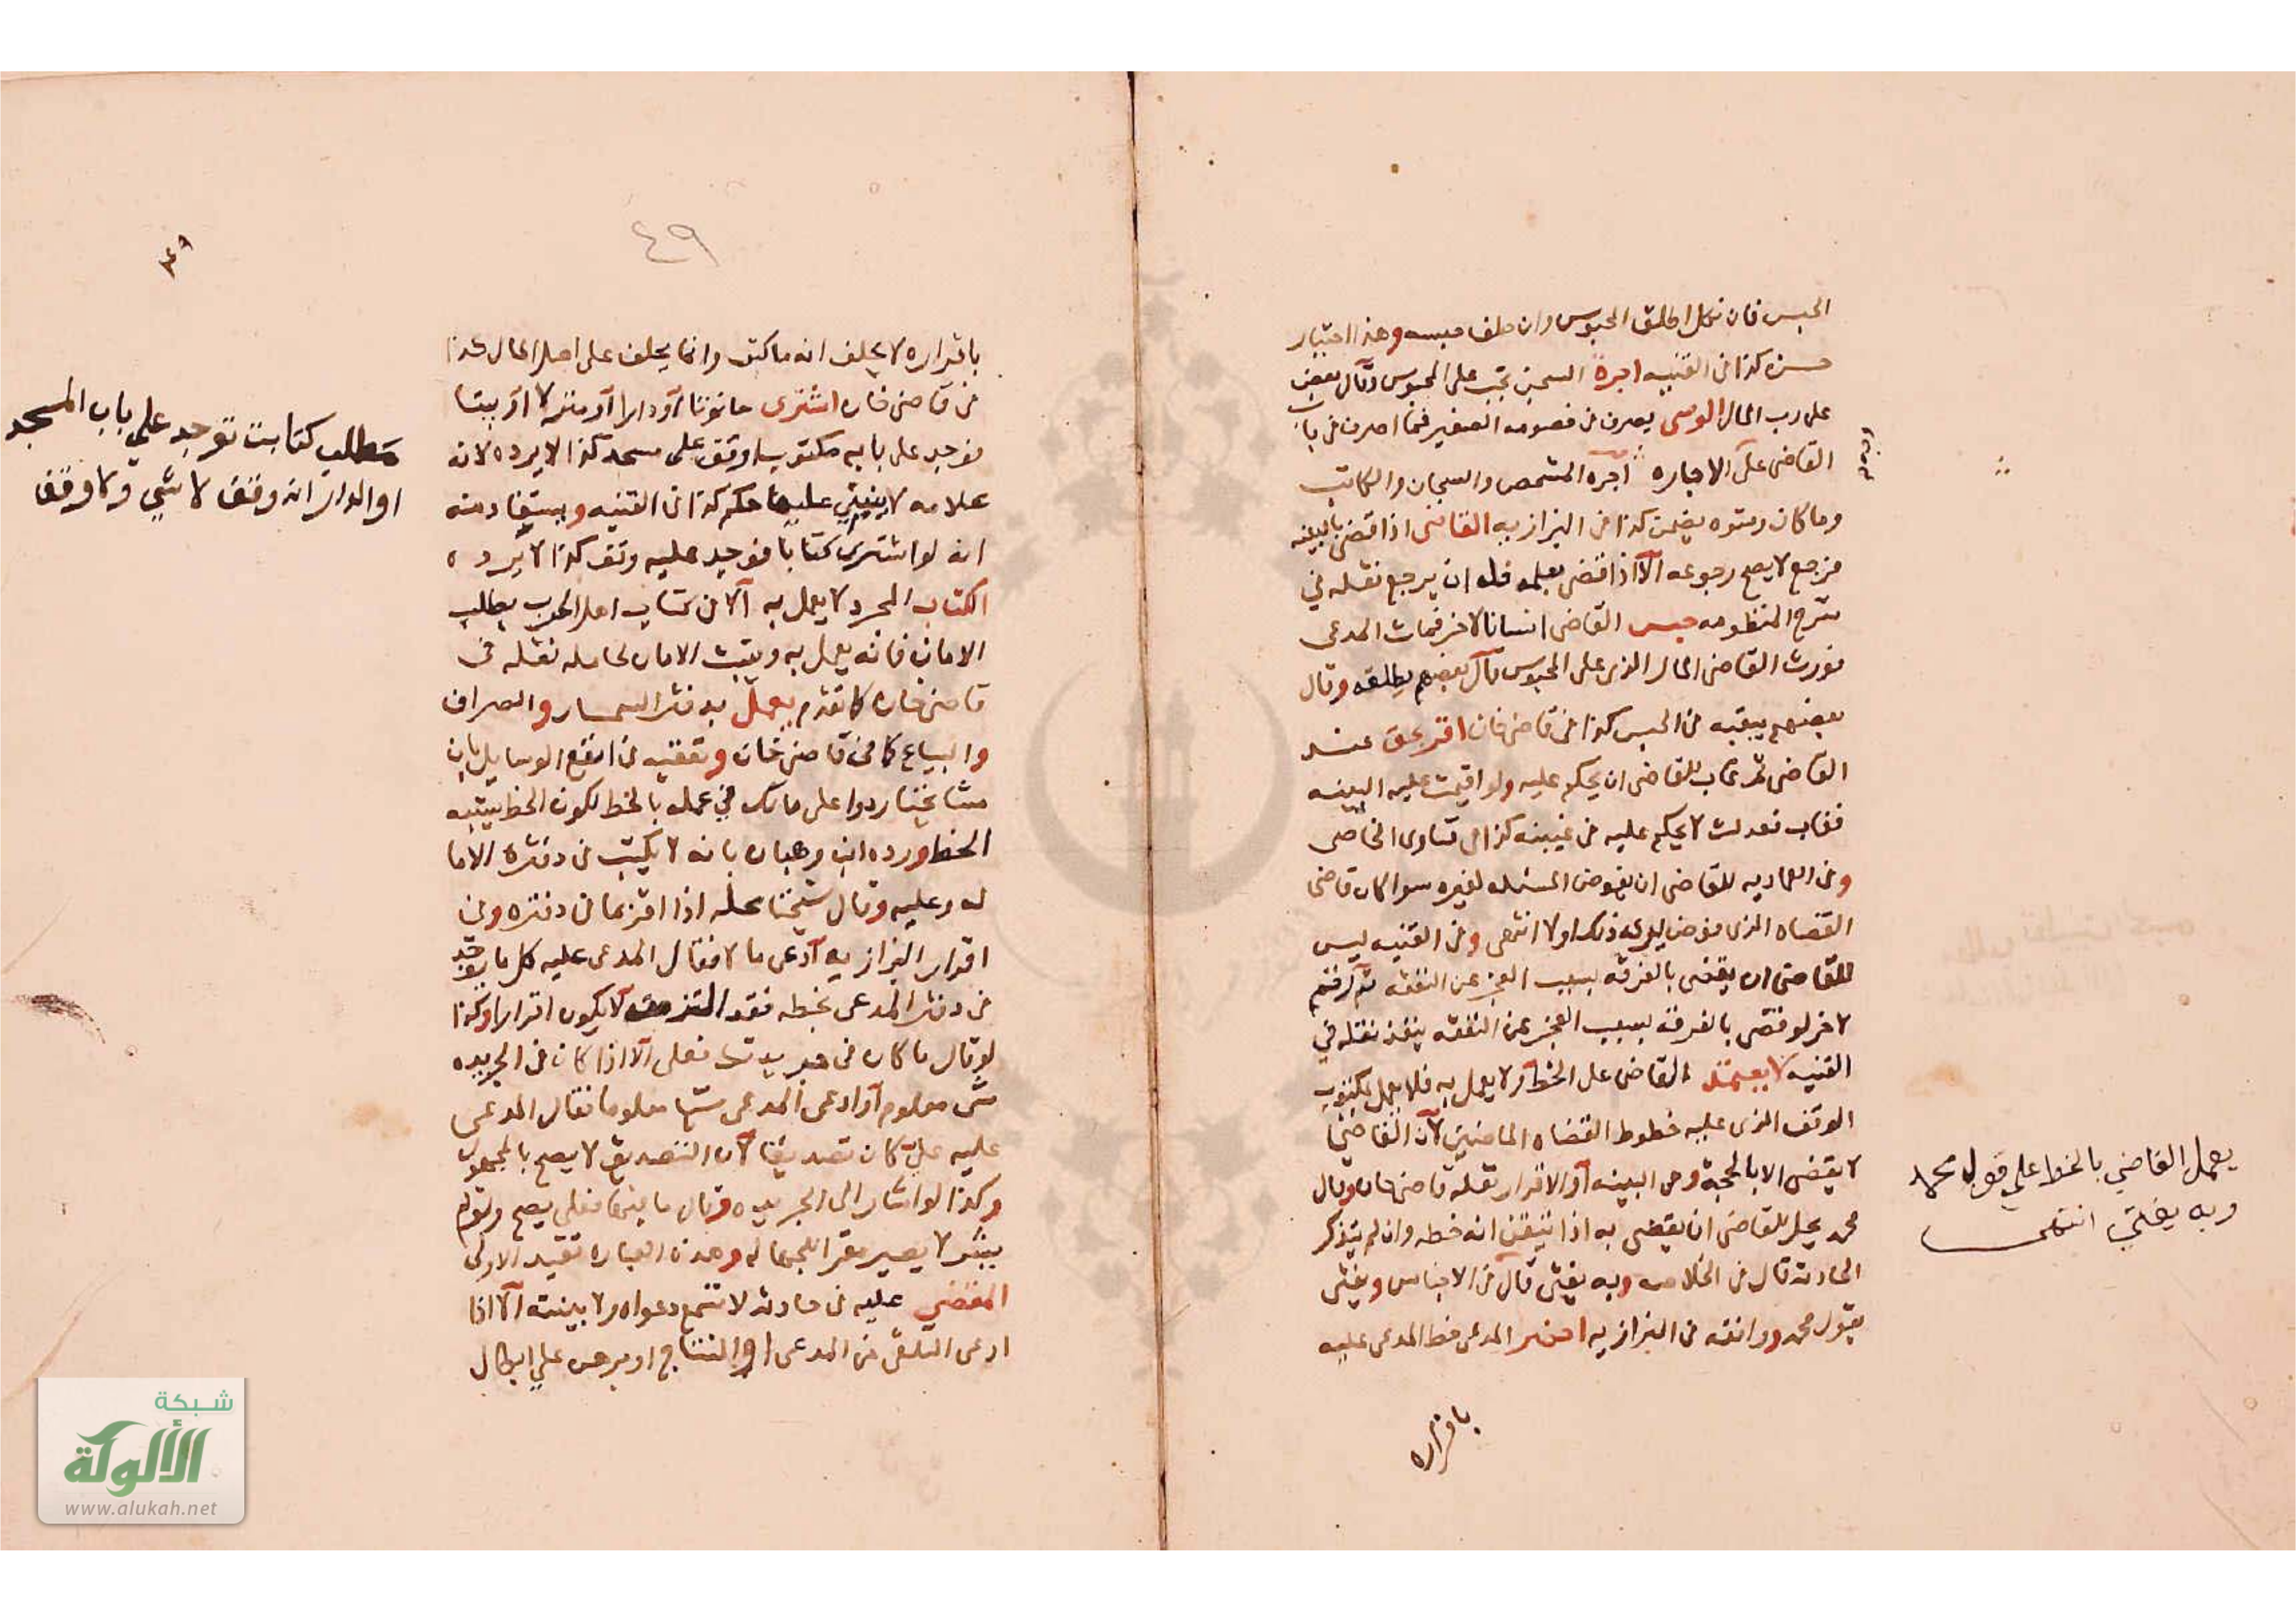 الحبس فان نكل اطلق المحبوس وان حلف حبسه وهذا اختيار
حسن كذا في القنيه اجرة السجن تجب على المحبوس وقال بعض
على رب المال الوصي يصرف في خصومه الصغير فما اصرف في باب
القاضي على الاجاره اجره المشخص والسجان والكاتب
وما كان رشوه يضمن كذا في البزازيه القاضي اذا قضى بالبينه
فرجع لا يصح رجوعه الا اذا قضى بعلمه فله ان يرجع نقله في
شرح المنظومه حبس القاضي انسانا لاخر فمات المدعي
فورث القاضي المال الذي على المحبوس قال بعضهم يطلقه وقال
بعضهم يبقيه في الحبس كذا في قاضي خان اقر بحق عند
القاضي ثم غاب للقاضي ان يحكم عليه ولو اقيمت عليه البينه
فغاب فعدلت لا يحكم عليه في غيبته كذا في فتاوى الخاصي
وفي العماديه للقاضي ان يفوض المسئله لغيره سوا كان قاضي
القضاه الذي فوض ليري ذلك اولا انتهى وفي القنيه ليس
للقاضي ان يقضي بالفرقه بسبب العجز عن النفقه ثم رقم
لاخر لو قضى بالفرقه بسبب العجز عن النفقه ينفذ نقله في
القنيه لا يعتمد القاضي على الخط ولا يعمل به فلا يعمل بمكتوب
الوقف الذي عليه خطوط القضاه الماضين لان القاضي
لا يقضي الا بالحجة وهي البينه او الاقرار نقله قاضي خان وقال
محمد يحل للقاضي ان يقضي به اذا تيقن انه خطه وان لم يتذكر
الحادثه قال في الخلاصه وبه يفتى قال في الاجناس ويفتى
بقول محمد ووافقه في البزازيه احضر المدعي خط المدعى عليه
باقراره
يعمل القاضي بالخط على قول محمد
وبه يفتي انتهى
٤٩
٤٩
باقراره لا يحلف انه ما كتب وانما يحلف على اصل المال كذا
في قاضي خان اشترى حانوتا او دارا او منزلا او بيتا
فوجد على بابه مكتوبا وقف على مسجد كذا لا يرده لانه
علامه لا ينبني عليها حكم كذا في القنيه ويستفاد منه
انه لو اشترى كتابا فوجد عليه وقف كذا لا يرده
الكتاب المجرد لا يعمل به الا في كتاب اهل الحرب بطلب
الامان فانه يعمل به ويثبت الامان لحامله نقله في
قاضي خان كما تقدم يعمل بدفتر السمسار والصراف
والبياع كما في قاضي خان وتعقبه في انفع الوسايل بان
مشايخنا ردوا على مالك في عمله بالخط لكون الخط يشبه
الخط ورده ابن وهبان بانه لا يكتب في دفتره الا ما
له وعليه وقال شيخنا محله اذا اقر بما في دفتره وفي
اقرار البزازيه ادعى مالا فقال المدعى عليه كل ما يوجد
في دفتر المدعي بخطه فقد التزمته لا يكون اقرارا وكذا
لو قال ما كان في جريدتك فعلي الا اذا كان في الجريده
شي معلوم او ادعى المدعي شيا معلوما فقال المدعى
عليه علي كان تصديقا لان التصديق لا يصح بالمجهول
وكذا لو اشار الى الجريده وقال ما فيها فعلي يصح ولو لم
يشر لا يصير مقرا للجهاله وهذه العباره تقيد الاولى
المقضي عليه في حادثه لا تسمع دعواه ولا بينته الا اذا
ادعى التلقي من المدعي او النتاج او برهن علي ابطال
مطلب كتابت توجد علي باب المسجد
او الدار انه وقف لا شي ولا وقف
شبكة
الألوكة
www.alukah.net